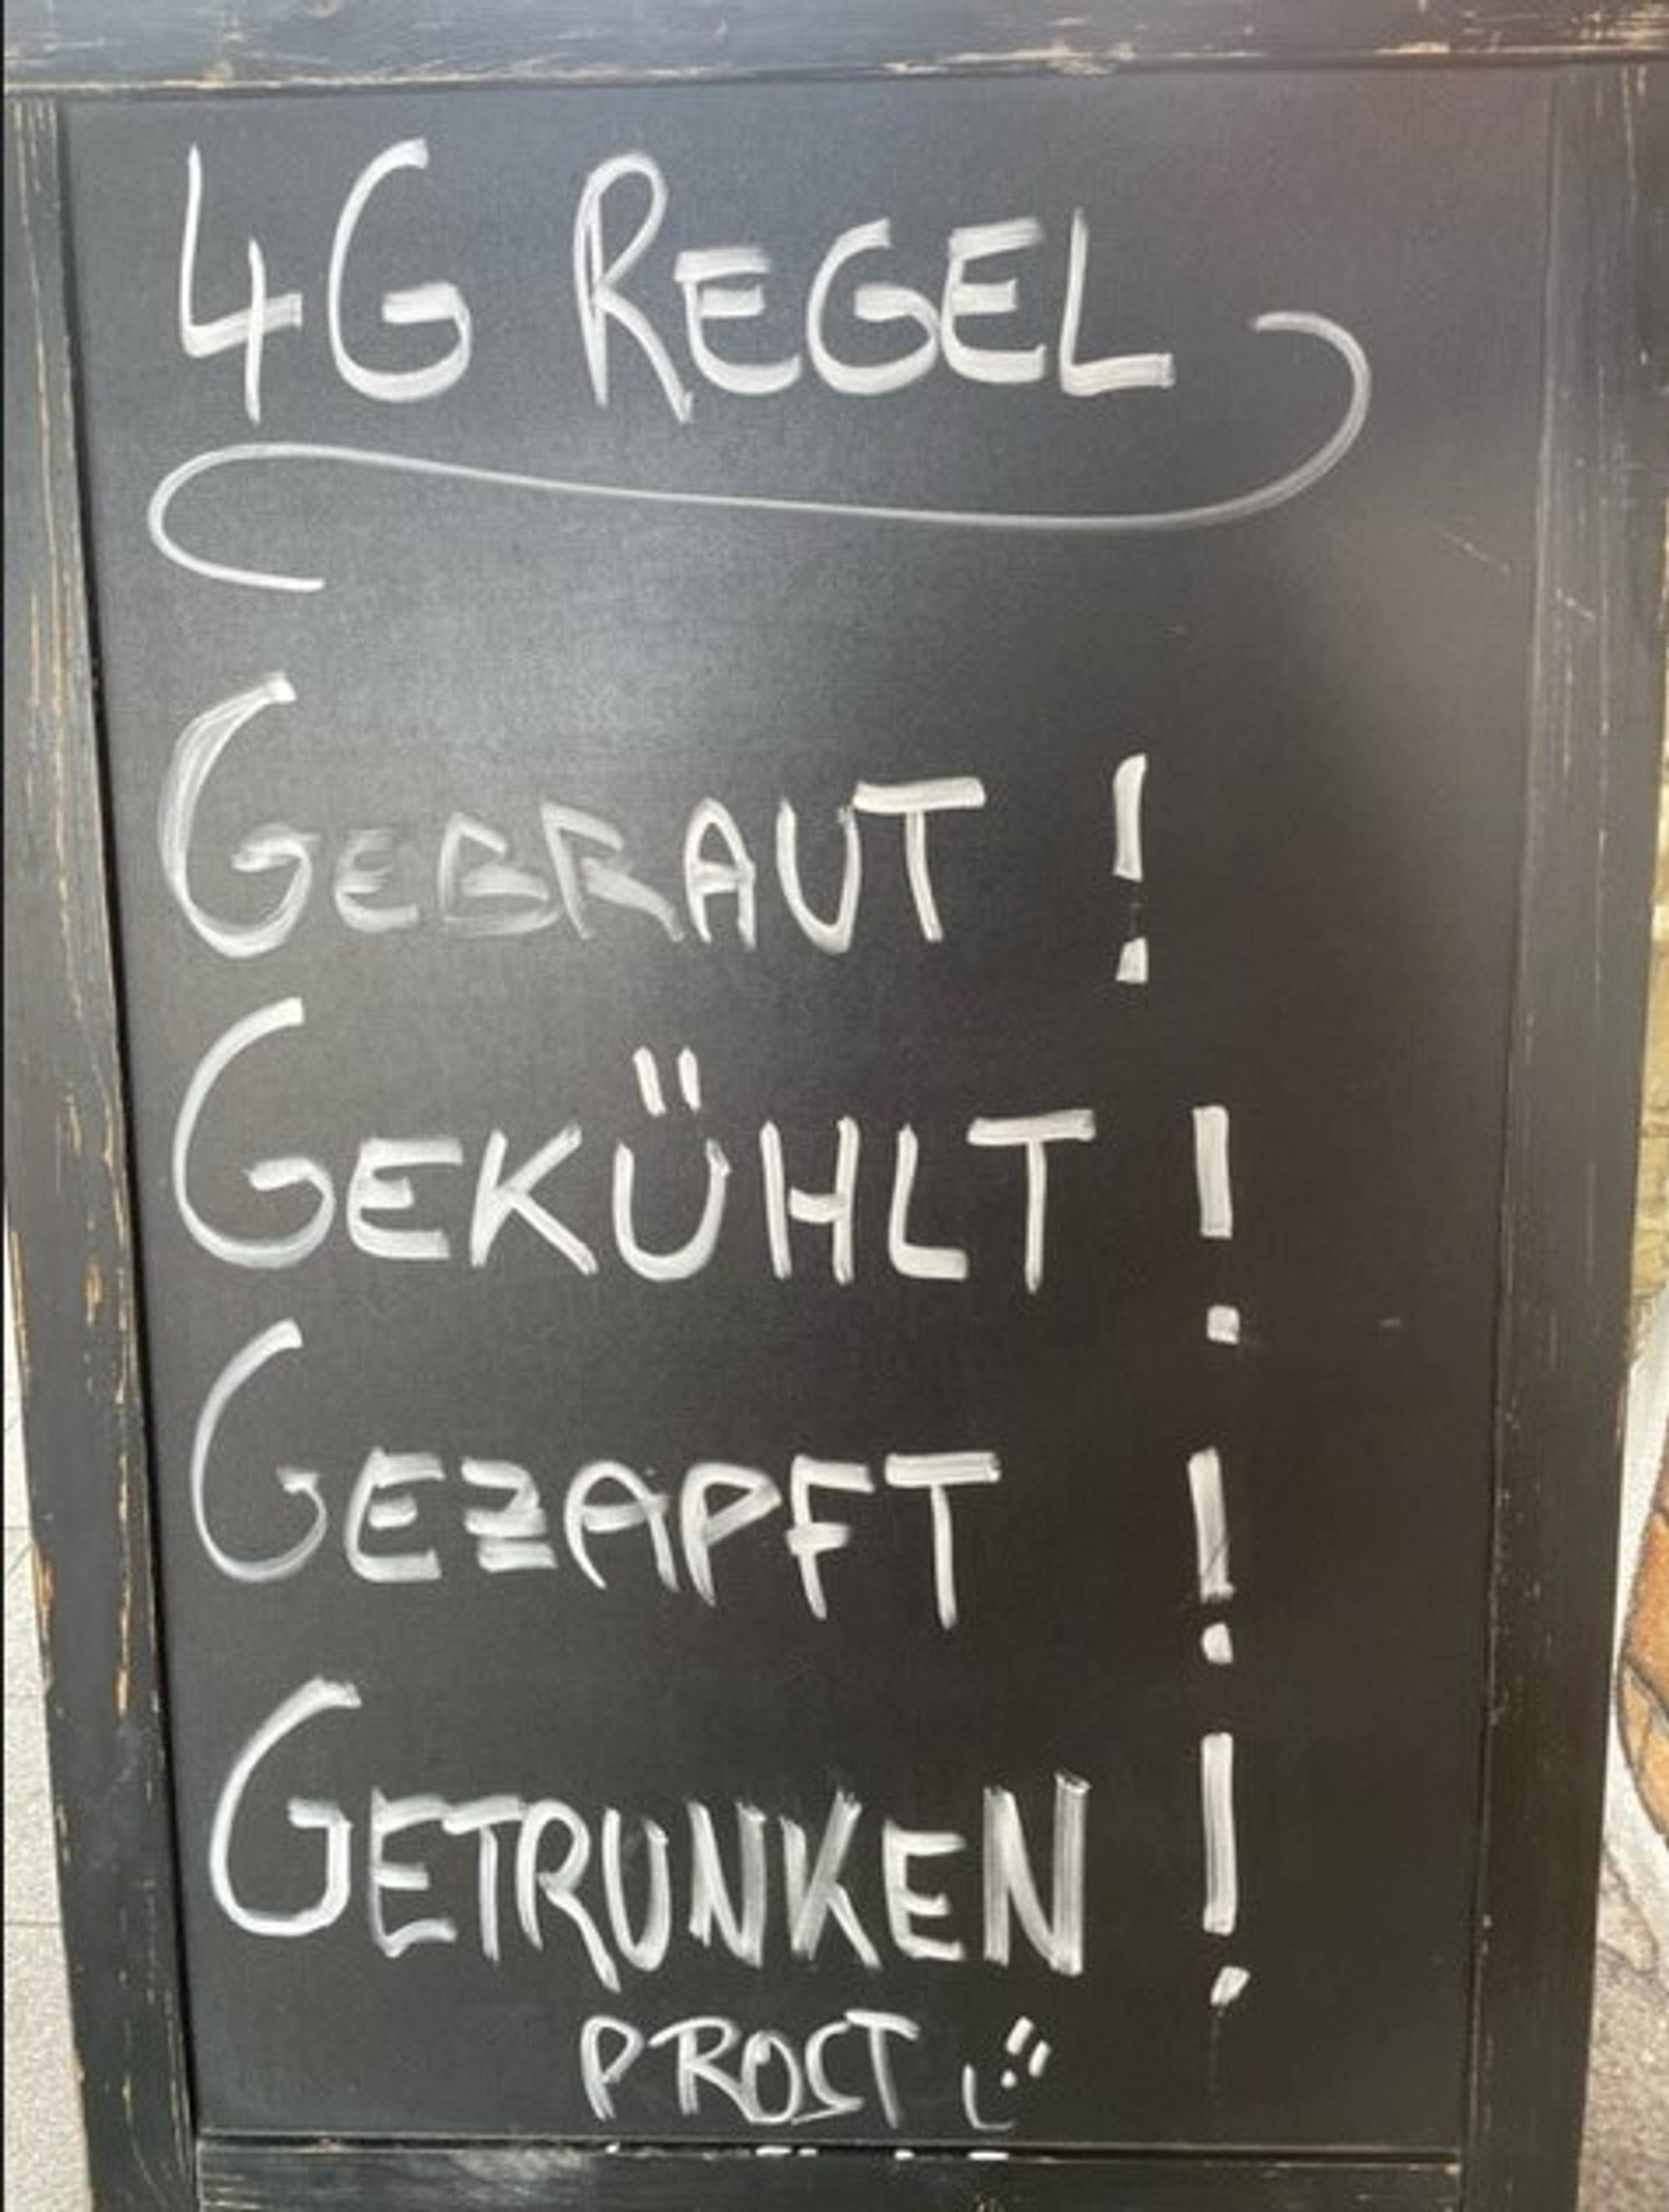 4G REGEL
GEBRAUT !
GEKÜHLT !
GEZAPFT !
GETRUNKEN !
PROST